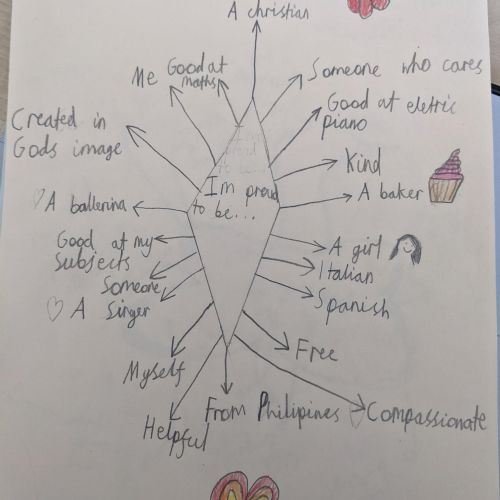 A christian
Me
Good at
maths
Someone who cares
Good at eletric
piano
Created in
Gods image
Kind
I'm proud
to be...
A baker
A ballerina
Good at my
subjects
A girl
Italian
Someone
A Singer
Spanish
Free
Myself
From Philipines
Compassionate
Helpful